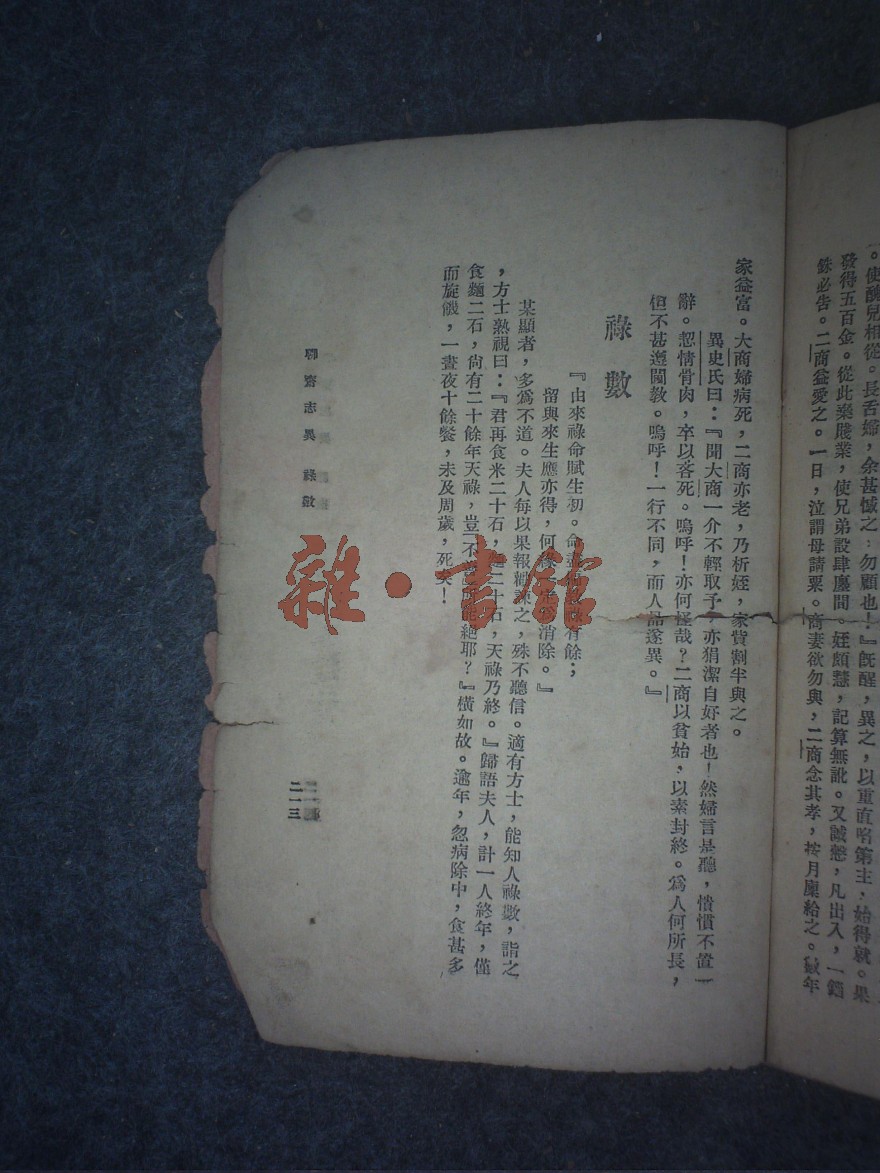 一。使醜兒相從。長舌婦，余甚憾之，勿顧也！』既醒，異之，以重直啗第主，始得就。果
發得五百金。從此棄賤業，使兄弟設肆廛間。姪頗慧，記算無訛。又誠慤，凡出入，一錙
銖必告。二商益愛之。一日，泣謂母請粟。商妻欲勿與，二商念其孝，按月廩給之。數年
家益富。大商婦病死，二商亦老，乃析姪，家貲割半與之。
異史氏曰：『聞大商一介不輕取予，亦狷潔自好者也！然婦言是聽，憒憒不置一
辭。恝情骨肉，卒以吝死。嗚呼！亦何怪哉？二商以貧始，以素封終。爲人何所長，
但不甚遵閫敎。嗚呼！一行不同，而人品遂異。』
祿數
『由來祿命賦生初。命盡 有餘；
留與來生應亦得，何 消除。』
某顯者，多爲不道。夫人每以果報勸諫之，殊不聽信。適有方士，能知人祿數，詣之
，方士熟視曰：『君再食米二十石，麵二十石，天祿乃終。』歸語夫人，計一人終年，僅
食麵二石，尚有二十餘年天祿，豈不 絕耶？』橫如故。逾年，忽病除中，食甚多
而旋饑，一晝夜十餘餐，未及周歲，死矣！
聊齋志異 祿數
二一三
雜·書館